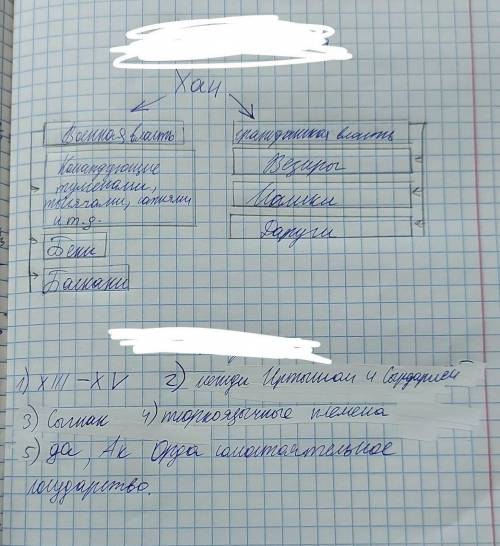 Хан
Военная власть
гражданская власть
Командующие
туменами,
тысячами, сотнями
и т.д.
Беки
Баскаки
Везиры
Малики
Даруги
1) XIII – XV 2) между Иртышом и Сырдарьей
3) Сыгнак 4) тюркоязычные племена
5) да, Ак Орда самостоятельное
государство.